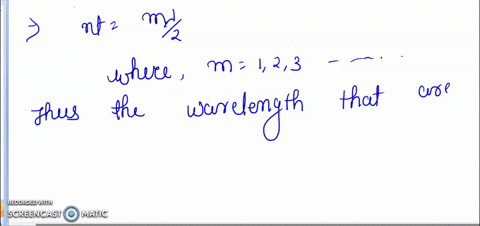 ⇒ nt = mλ/2
where, m = 1, 2, 3 - - - - .
Thus the wavelength that are
RECORDED WITH
SCREENCAST MATIC